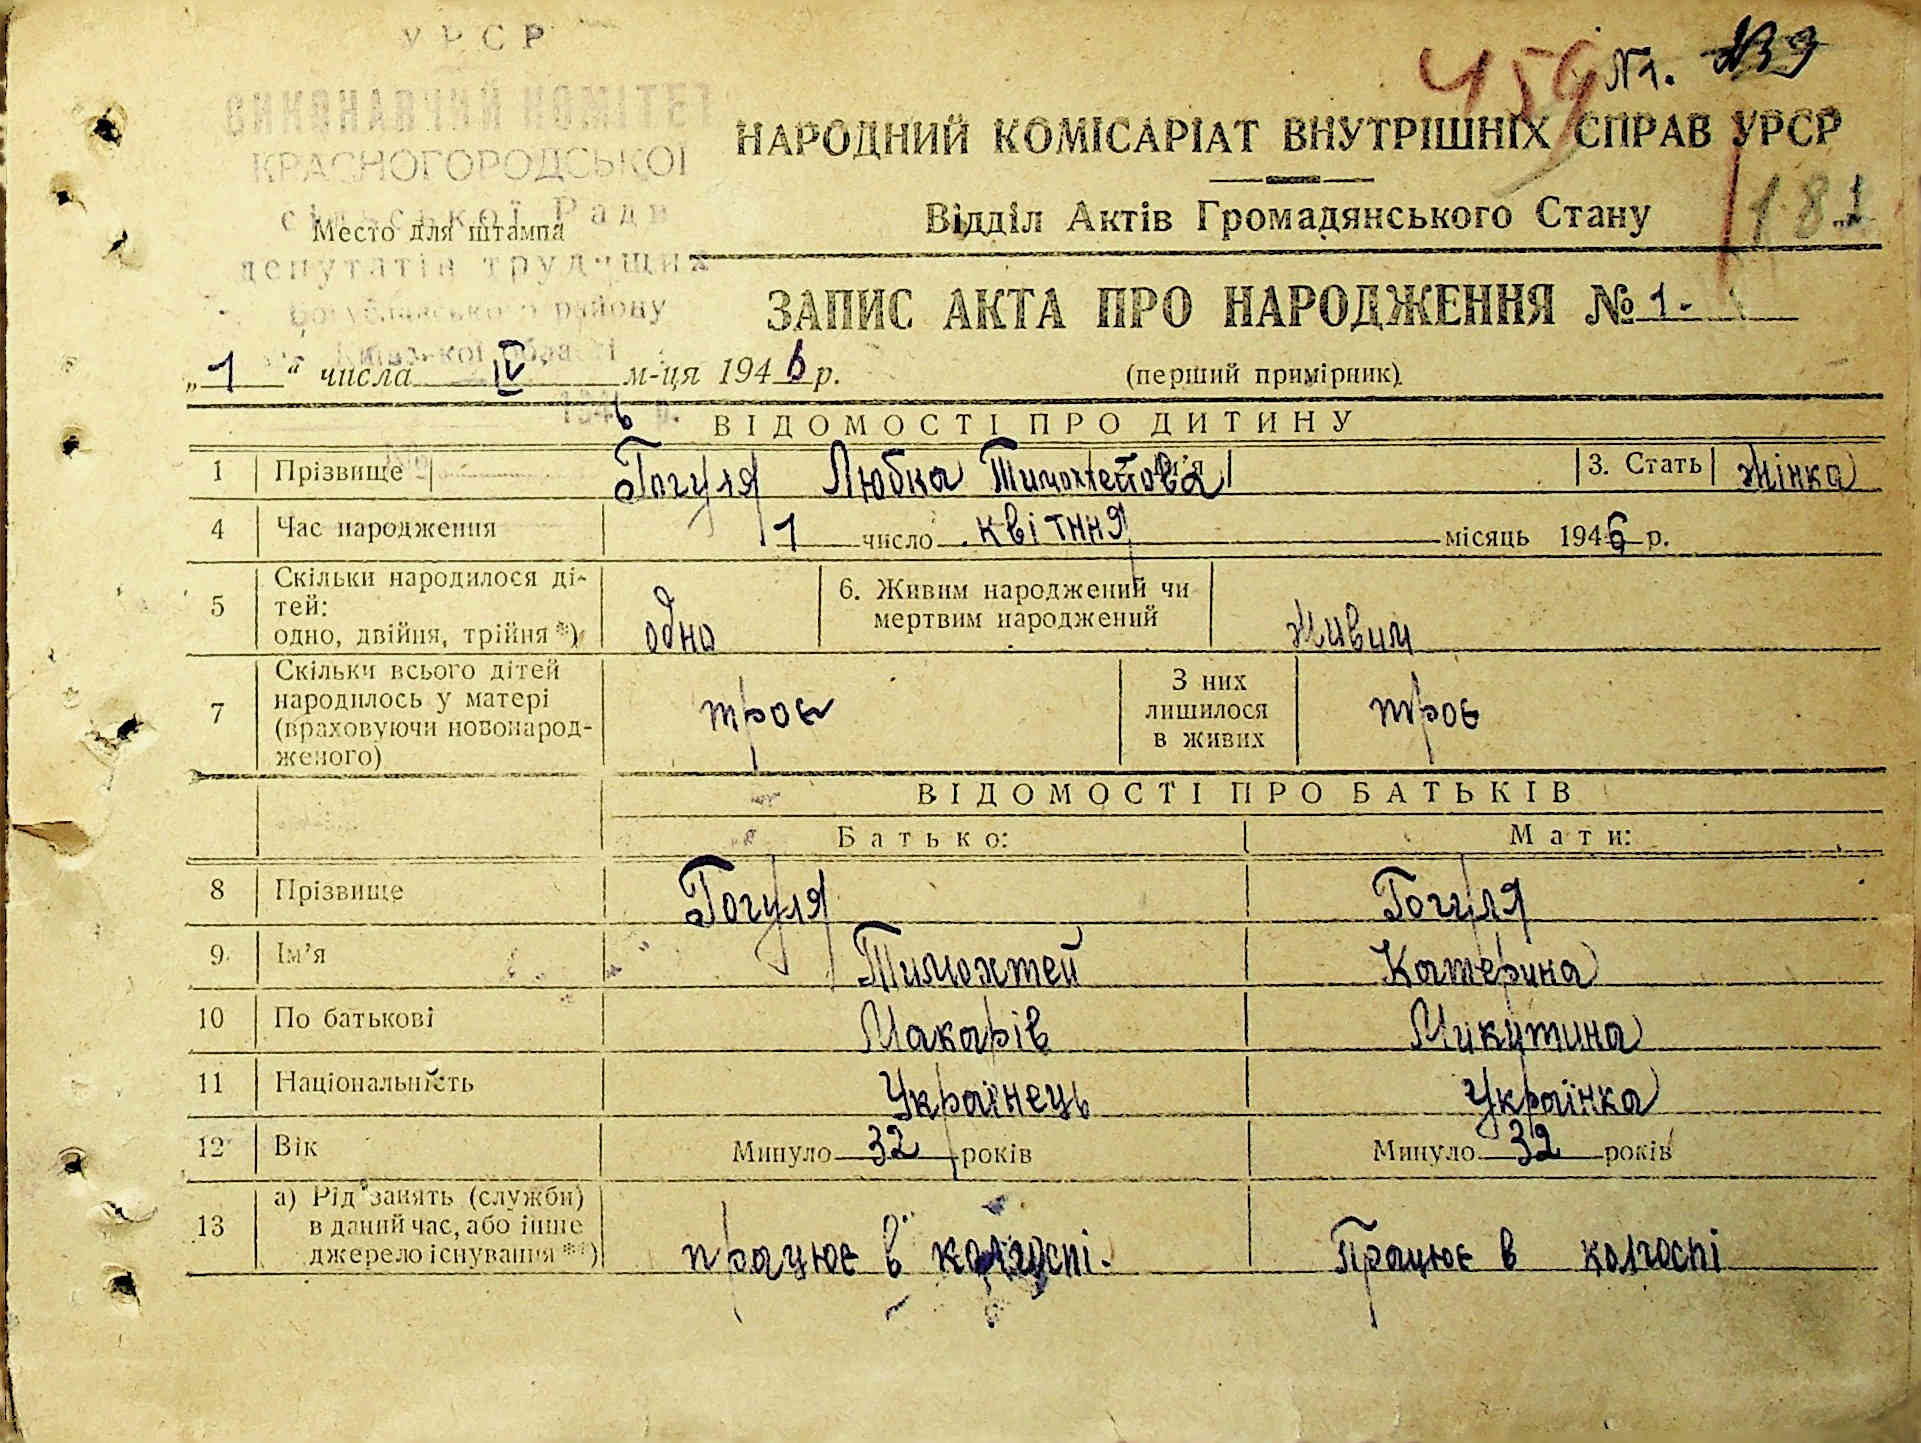 УРСР
ВИКОНАВЧИЙ КОМІТЕТ
КРАСНОГОРОДСЬКОЇ
сільської Ради
Место для штампа
депутатів трудящих
Богуславського району
Київської області
194 6 р.
459 №1.
181
НАРОДНИЙ КОМІСАРІАТ ВНУТРІШНІХ СПРАВ УРСР
Відділ Актів Громадянського Стану
ЗАПИС АКТА ПРО НАРОДЖЕННЯ № 1.
„ 1 “ числа IV м-ця 194 6 р. (перший примірник)
ВІДОМОСТІ ПРО ДИТИНУ
1 Прізвище Гогуля Любка Тимохтейова 3. Стать жінка
4 Час народження 1 число квітння місяць 194 6 р.
5 Скільки народилося ді-
тей:
одно, двійня, трійня *) одно 6. Живим народжений чи
мертвим народжений живим
7 Скільки всього дітей
народилось у матері
(враховуючи новонарод-
женого) троє З них
лишилося
в живих троє
ВІДОМОСТІ ПРО БАТЬКІВ
Батько: Мати:
8 Прізвище Гогуля Гогуля
9 Ім’я Тимохтей Катерина
10 По батькові Макарів Микитина
11 Національність Українець Українка
12 Вік Минуло 32 років Минуло 32 років
13 а) Рід занять (служби)
в даний час, або інше
джерело існування **) працює в колгоспі. Працює в колгоспі